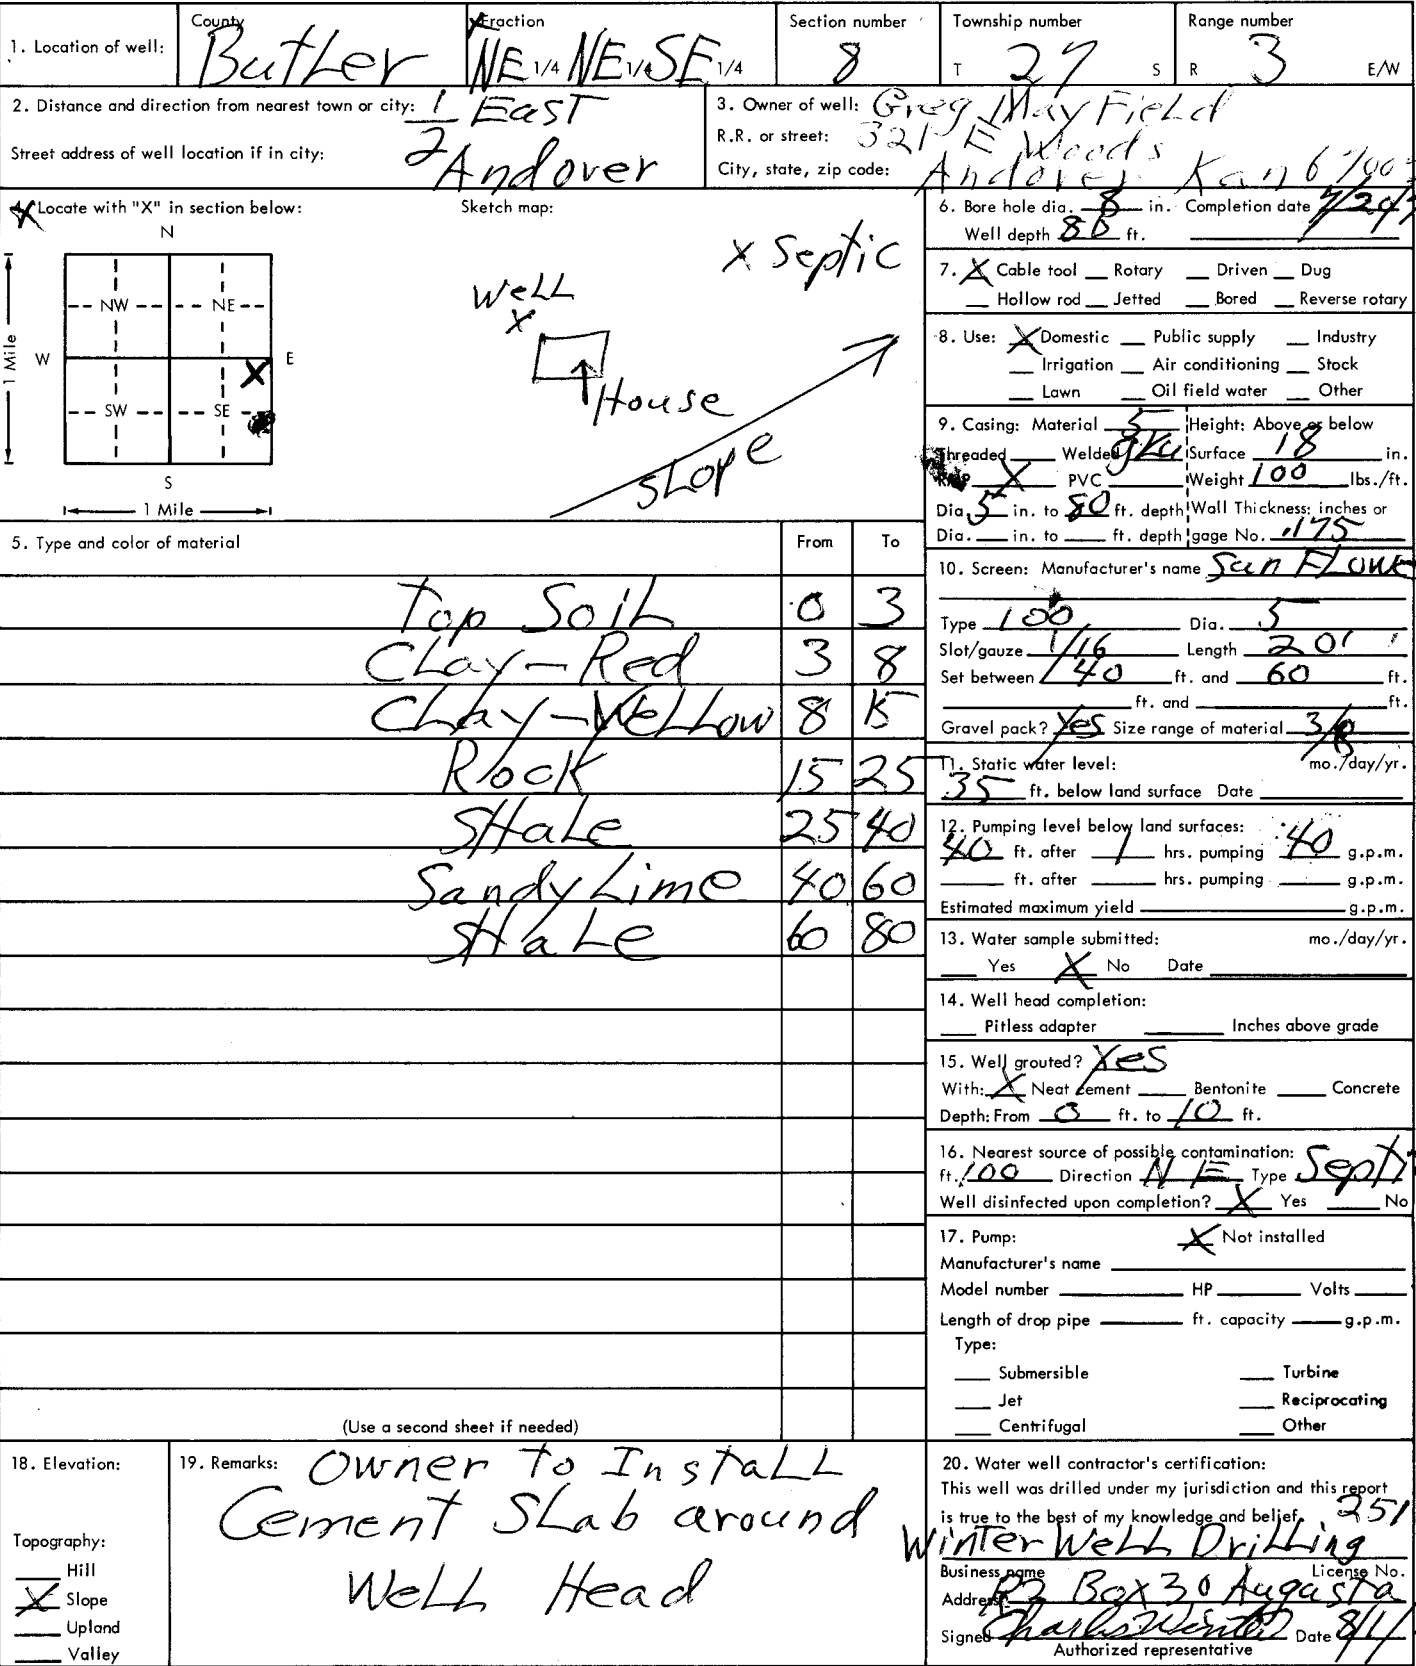 1. Location of well: County Butler Fraction NE 1/4 NE 1/4 SE 1/4 Section number 8 Township number T 27 S Range number R 3 E/W
2. Distance and direction from nearest town or city: 1/2 East
Street address of well location if in city: Andover
3. Owner of well: Greg MayField
R.R. or street: 321 E Woods
City, state, zip code: Andover Kan
X Locate with "X" in section below: Sketch map:
N
NW NE
W E
X
SW SE
S
1 Mile
1 Mile
X Septic
Well
X
House
Slope
5. Type and color of material From To
Top Soil 0 3
Clay-Red 3 8
Clay-Yellow 8 15
Rock 15 25
SHaLe 25 40
Sandy Lime 40 60
SHaLe 60 80
(Use a second sheet if needed)
6. Bore hole dia. 8 in. Completion date
Well depth 80 ft.
7. X Cable tool __ Rotary __ Driven __ Dug
__ Hollow rod __ Jetted __ Bored __ Reverse rotary
8. Use: X Domestic __ Public supply __ Industry
__ Irrigation __ Air conditioning __ Stock
__ Lawn __ Oil field water __ Other
9. Casing: Material 5 Height: Above or below
Threaded __ Welded Surface 18 in.
X PVC __ Weight 100 lbs./ft.
Dia. 5 in. to 80 ft. depth Wall Thickness: inches or
Dia. __ in. to __ ft. depth gage No. .175
10. Screen: Manufacturer's name Sun FLowe
Type 100 Dia. 5
Slot/gauze 1/16 Length 20'
Set between 40 ft. and 60 ft.
__ ft. and __ ft.
Gravel pack? Yes Size range of material
11. Static water level: mo./day/yr.
35 ft. below land surface Date
12. Pumping level below land surfaces:
40 ft. after 1 hrs. pumping 40 g.p.m.
__ ft. after __ hrs. pumping __ g.p.m.
Estimated maximum yield __ g.p.m.
13. Water sample submitted: mo./day/yr.
__ Yes X No Date
14. Well head completion:
__ Pitless adapter __ Inches above grade
15. Well grouted? Yes
With: X Neat cement __ Bentonite __ Concrete
Depth: From 0 ft. to 10 ft.
16. Nearest source of possible contamination:
ft. 100 Direction NE Type Septi
Well disinfected upon completion? X Yes __ No
17. Pump: X Not installed
Manufacturer's name
Model number __ HP __ Volts
Length of drop pipe __ ft. capacity __ g.p.m.
Type:
__ Submersible __ Turbine
__ Jet __ Reciprocating
__ Centrifugal __ Other
18. Elevation:
Topography:
__ Hill
X Slope
__ Upland
__ Valley
19. Remarks: Owner To InstaLL
Cement SLab around
WeLL Head
20. Water well contractor's certification:
This well was drilled under my jurisdiction and this report
is true to the best of my knowledge and belief. 251
Winter WeLL DriLLing
Business name License No.
Address R2 Box 30 Augusta
Signed Charles Winter Date 8/1/
Authorized representative